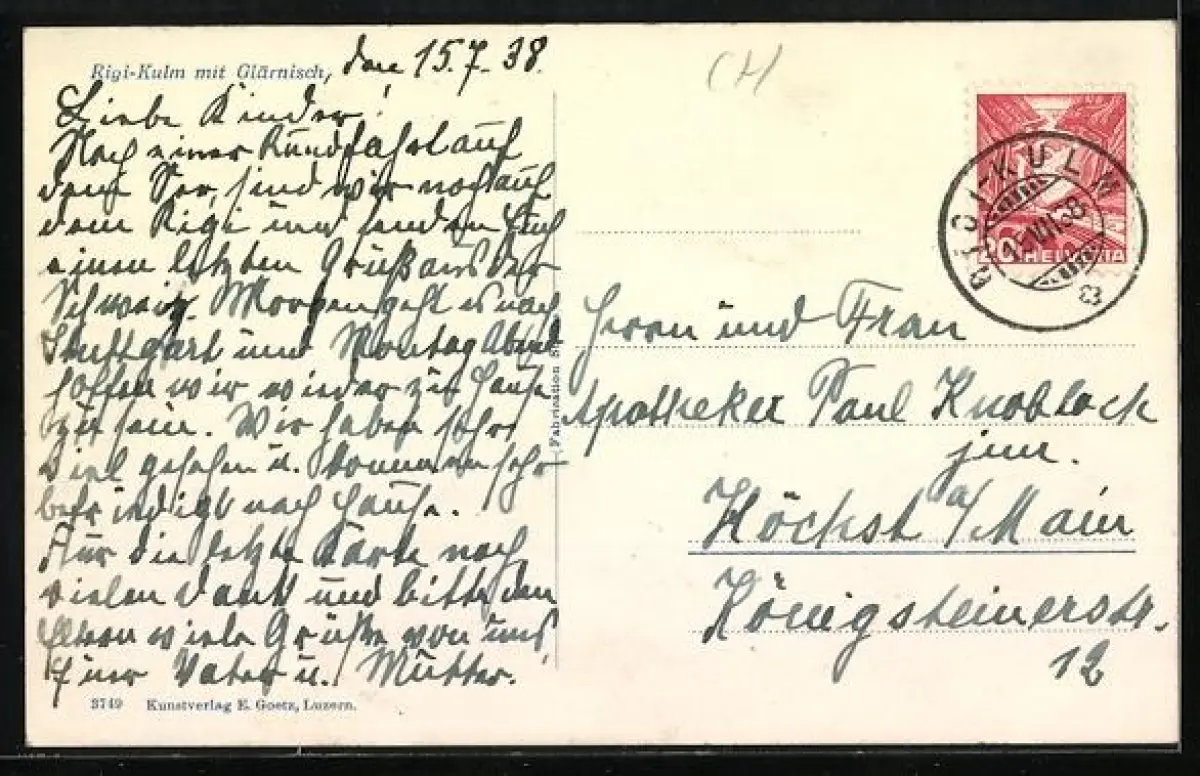 Rigi-Kulm mit Glärnisch, den 15.7.38.
Liebe Kinder!
Nach einer Rundfahrt auf
dem See, sind wir noch auf
dem Rigi und senden Euch
einen letzten Gruß aus der
Schweiz. Morgen geht es nach
Stuttgart und Montag Abend
hoffen wir wieder zu Hause
zu sein. Wir haben sehr
viel gesehen u. kommen sehr
befriedigt nach Hause.
Für die letzte Karte noch
vielen Dank und bitte den
Eltern viele Grüße von uns
Euer Vater u. Mutter.
3749 Kunstverlag E. Goetz, Luzern.
Fabrication
CH
RIGI-KULM
15.VII.38
20 HELVETIA
Herrn und Frau
Apotheker Paul Knoblock
jun.
Höchst a/Main
Königsteinerstr.
12